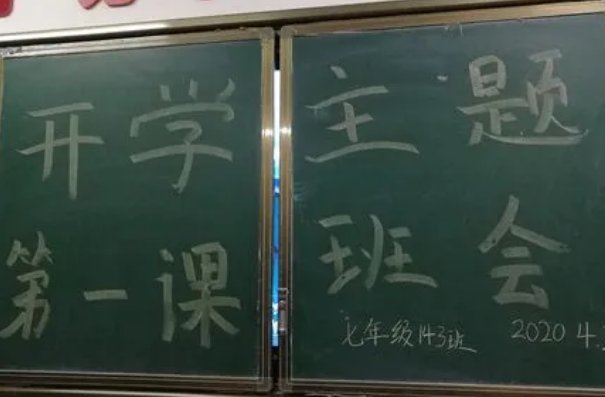 开学
第一课
主题
班会
七年级143班 2020 4.